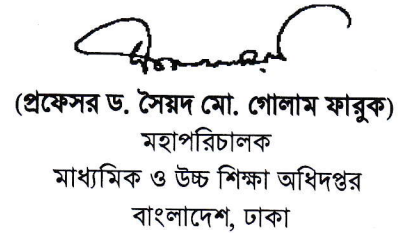 (প্রফেসর ড. সৈয়দ মো. গোলাম ফারুক)
মহাপরিচালক
মাধ্যমিক ও উচ্চ শিক্ষা অধিদপ্তর
বাংলাদেশ, ঢাকা